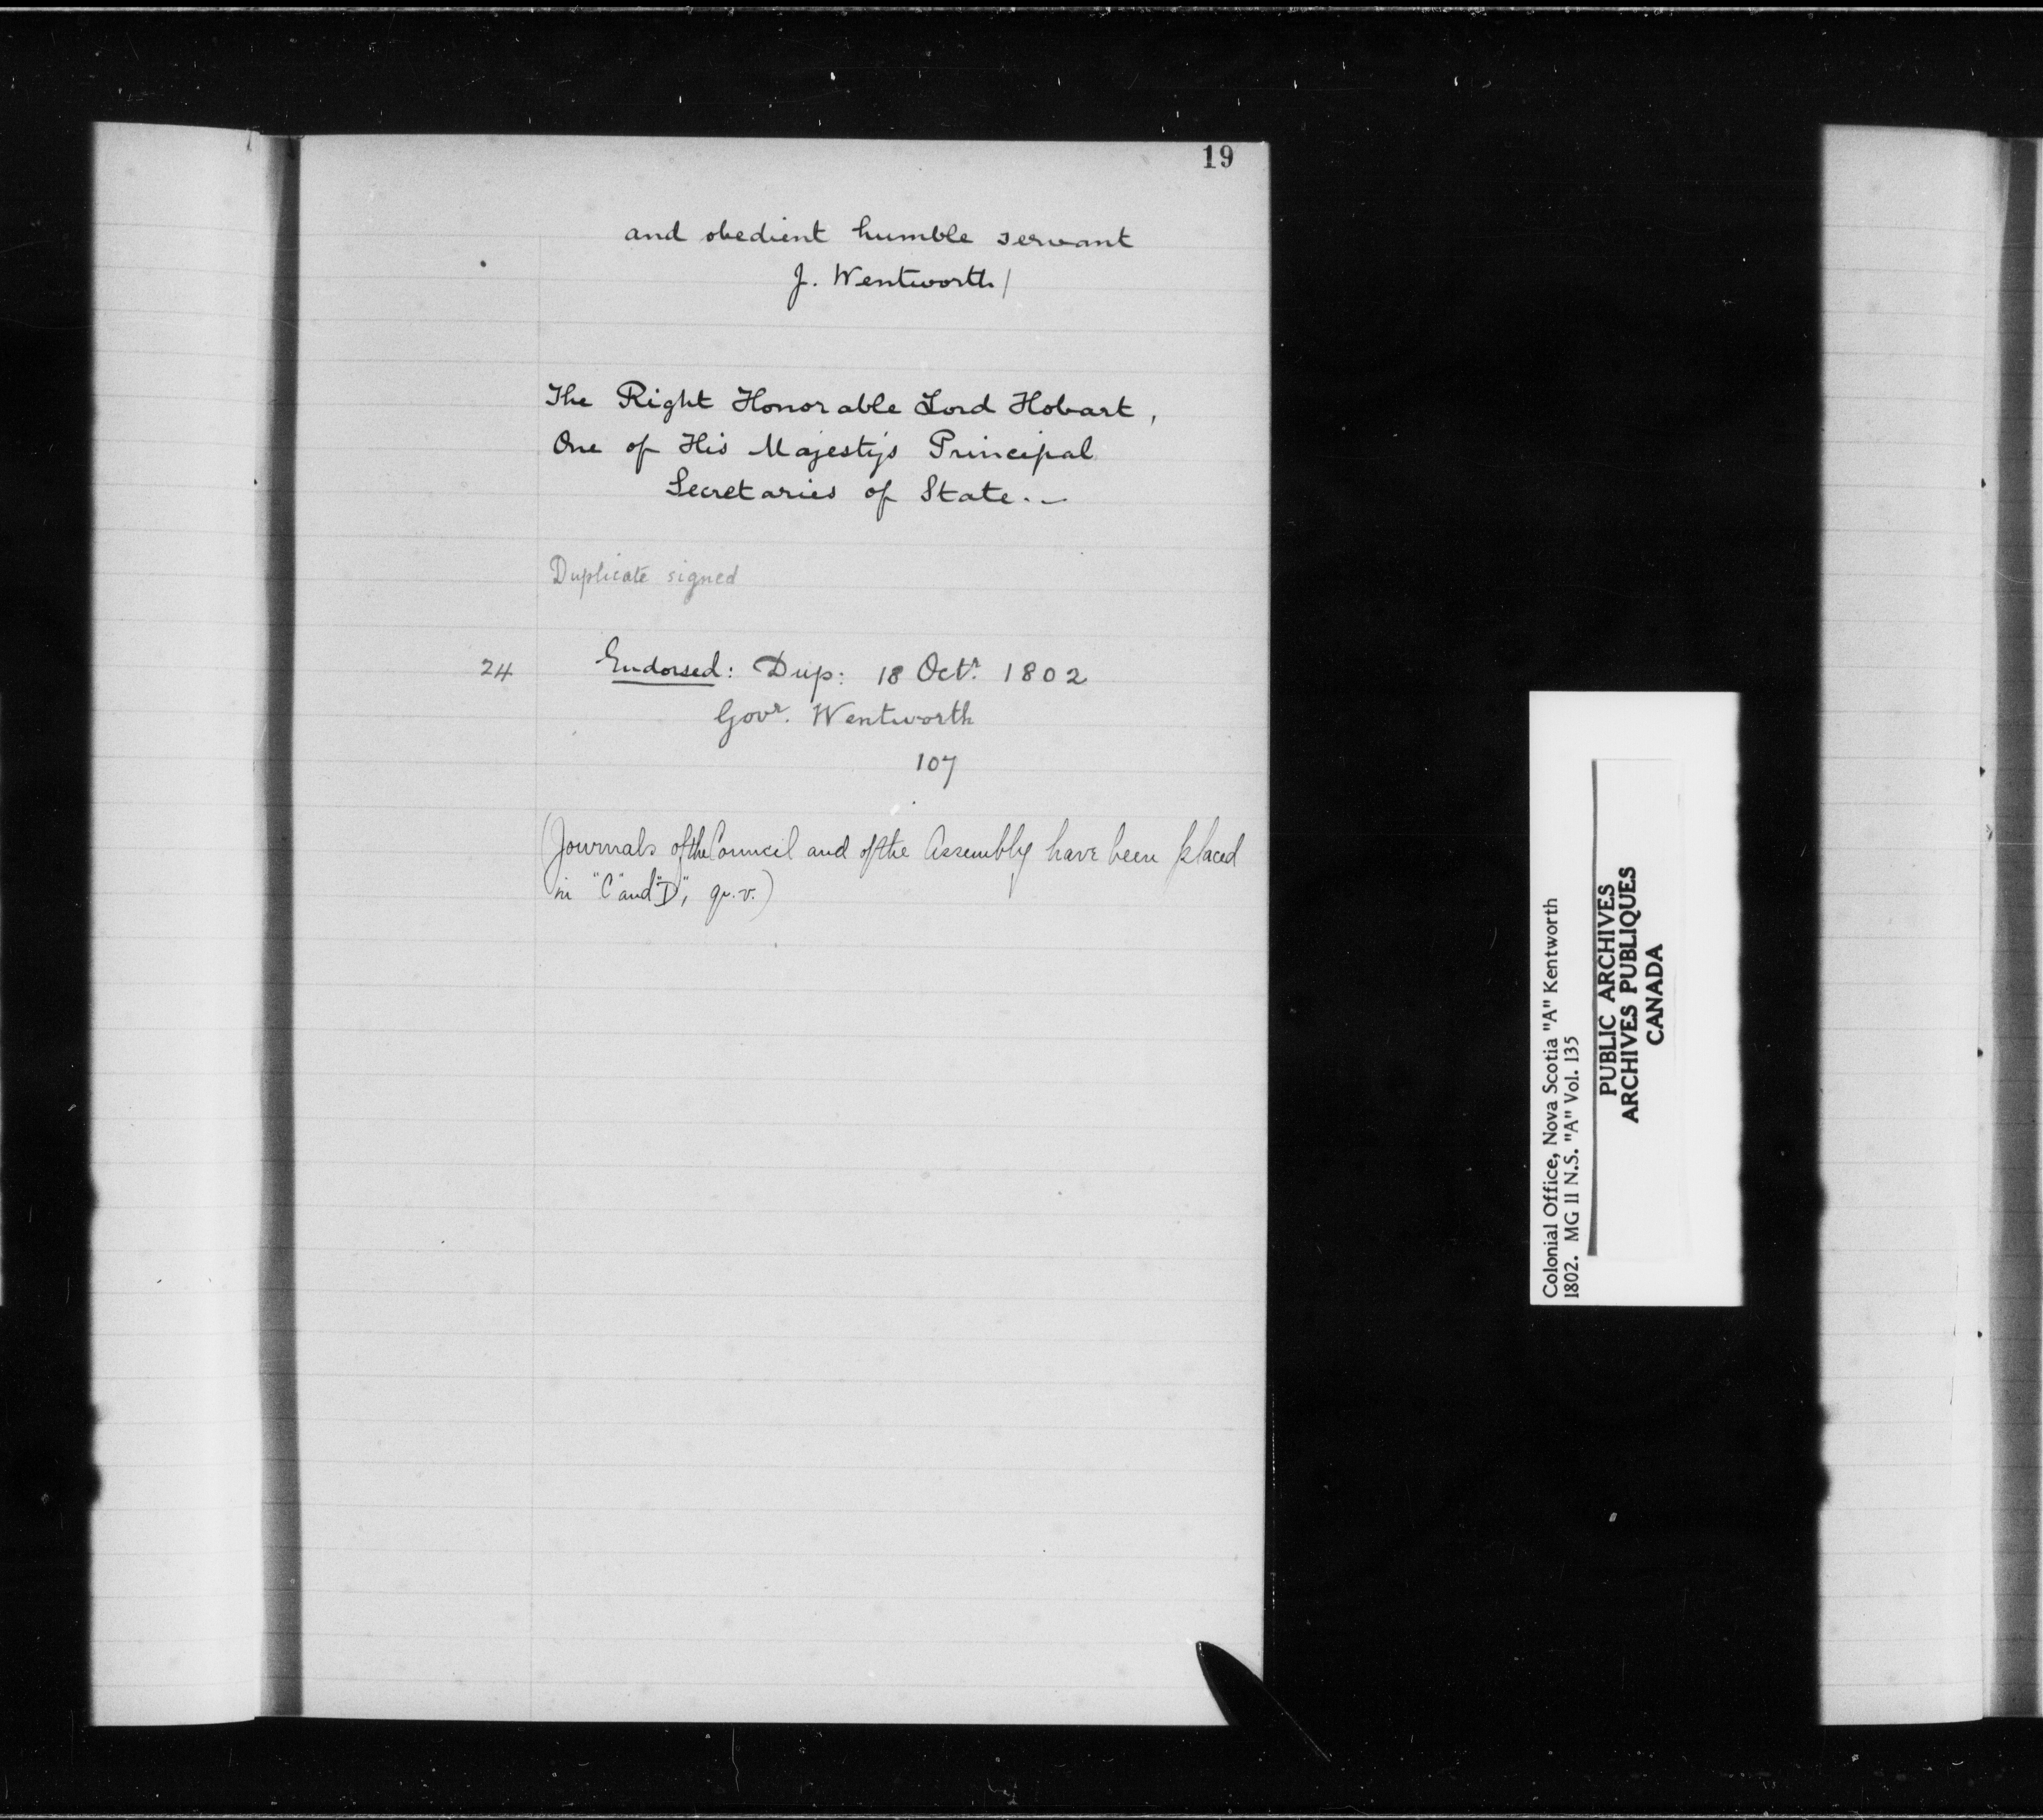 19
and obedient humble servant
J. Wentworth/
The Right Honorable Lord Hobart,
One of His Majesty's Principal
Secretaries of State.-
Duplicate signed
24 Endorsed: Dup: 18 Octr. 1802
Govr. Wentworth
107
(Journals of the Council and of the Assembly have been placed
in "C" and "D", qu.v.)
Colonial Office, Nova Scotia "A" Kentworth
1802. MG 11 N.S. "A" Vol. 135
PUBLIC ARCHIVES
ARCHIVES PUBLIQUES
CANADA